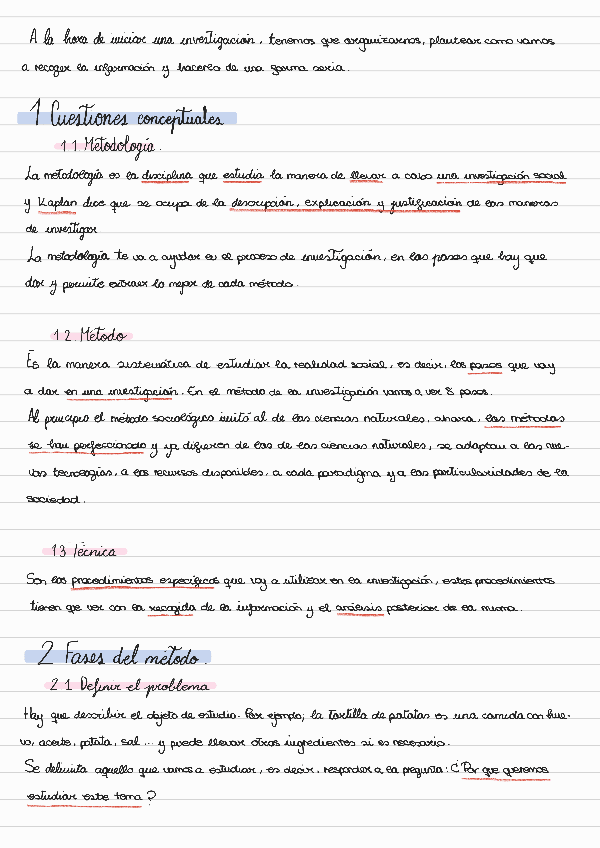 A la hora de iniciar una investigación, tenemos que organizarnos, plantear como vamos
a recoger la información y hacerlo de una forma seria.
1 Cuestiones conceptuales
1.1 Metodología.
La metodología es la disciplina que estudia la manera de llevar a cabo una investigación social
y Kaplan dice que se ocupa de la descripción, explicación y justificación de las maneras
de investigar
La metodología te va a ayudar en el proceso de investigación, en los pasos que hay que
dar y permite extraer lo mejor de cada método.
1.2. Método
Es la manera sistemática de estudiar la realidad social, es decir, los pasos que voy
a dar en una investigación. En el método de la investigación vamos a ver 8 pasos.
Al principio el método sociológico imitó al de las ciencias naturales, ahora, los métodos
se han perfeccionado y ya difieren de los de las ciencias naturales, se adaptan a las nue-
vas tecnologías, a los recursos disponibles, a cada paradigma y a las particularidades de la
sociedad.
1.3 Técnica
Son los procedimientos específicos que voy a utilizar en la investigación, estos procedimientos
tienen qe ver con la recogida de la información y el análisis posterior de la misma.
2 Fases del método.
2.1 Definir el problema
Hay que describir el objeto de estudio. Por ejemplo; la tortilla de patatas es una comida con hue-
vo, aceite, patata, sal ... y puede llevar otros ingredientes si es necesario.
Se delimita aquello que vamos a estudiar, es decir, responder a la pregunta: ¿Por que queremos
estudiar este tema?